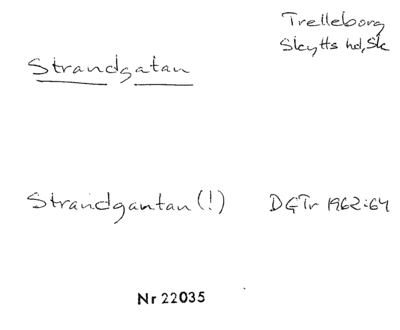 Trelleborg
Skytts hd, Sk
Strandgatan
Strandgantan (!) DGTr 1962:64
Nr 22035